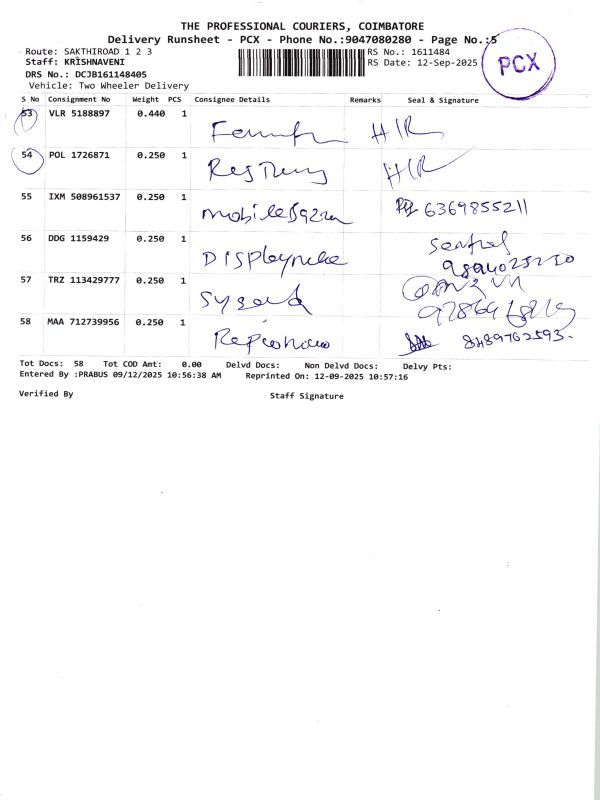 THE PROFESSIONAL COURIERS, COIMBATORE
Delivery Runsheet - PCX - Phone No.:9047080280 - Page No.:5
Route: SAKTHIROAD 1 2 3 RS No.: 1611484
Staff: KRISHNAVENI RS Date: 12-Sep-2025
PCX
DRS No.: DCJB161148405
Vehicle: Two Wheeler Delivery
S No Consignment No Weight PCS Consignee Details Remarks Seal & Signature
53 VLR 5188897 0.440 1 HIR
54 POL 1726871 0.250 1 HIR
55 IXM 508961537 0.250 1 mobileBazaar 6369855211
56 DDG 1159429 0.250 1
57 TRZ 113429777 0.250 1
58 MAA 712739956 0.250 1 8489762593.
Tot Docs: 58 Tot COD Amt: 0.00 Delvd Docs: Non Delvd Docs: Delvy Pts:
Entered By :PRABUS 09/12/2025 10:56:38 AM Reprinted On: 12-09-2025 10:57:16
Verified By Staff Signature